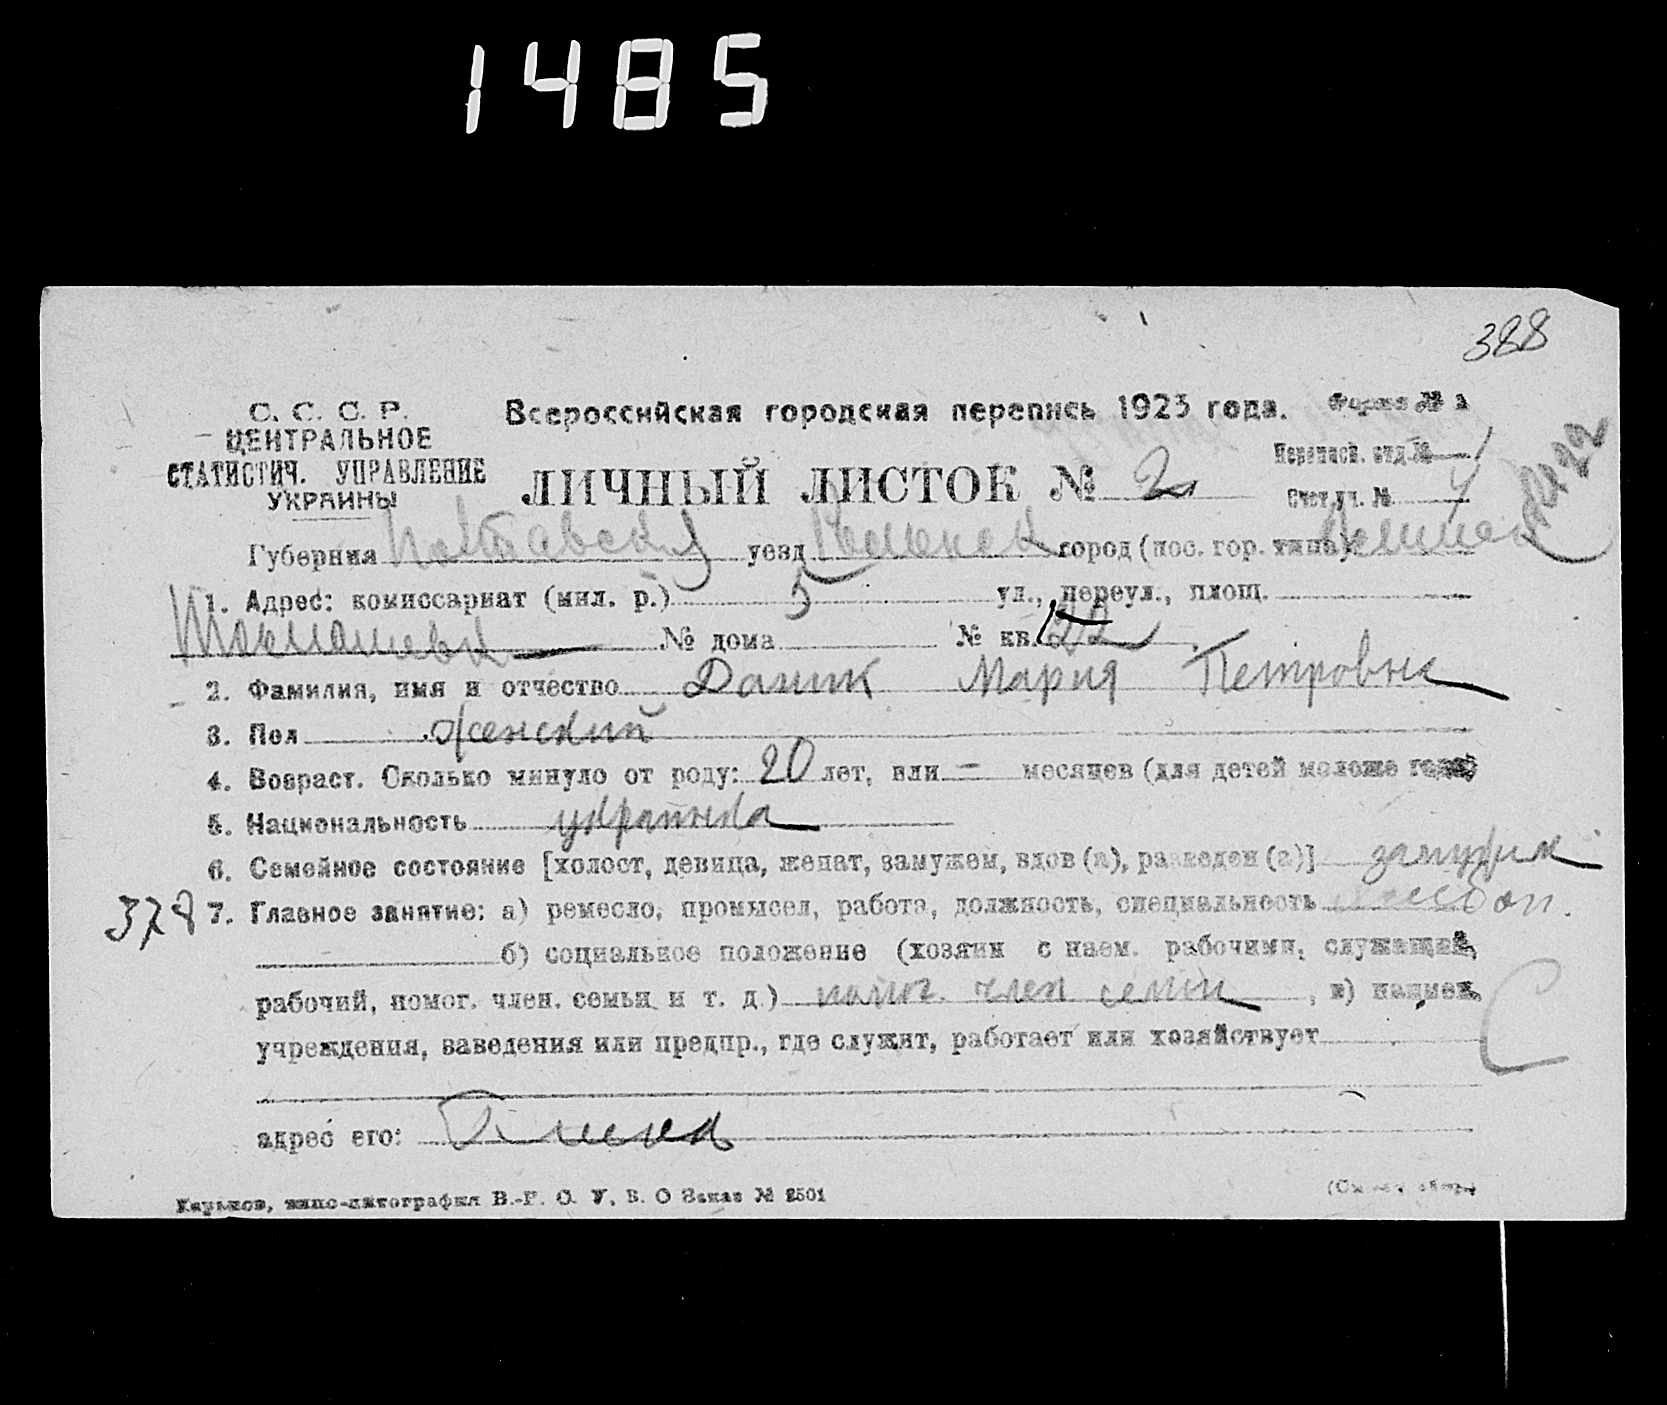 1485
388
С. С. С. Р.
ЦЕНТРАЛЬНОЕ
СТАТИСТИЧ. УПРАВЛЕНИЕ
УКРАИНЫ
Всероссийская городская перепись 1923 года. Форма № 1
ЛИЧНЫЙ ЛИСТОК № 2
Переписн. отд. № 1
Счетн. уч. № 4
Губерния Полтавский уезд Роменск город (пос. гор. типа)
1. Адрес: комиссариат (мил. р.) 5 ул., переул., площ.
№ дома № кв. 122
2. Фамилия, имя и отчество Даник Мария Петровна
3. Пол Женский
4. Возраст. Сколько минуло от роду: 20 лет, или – месяцев (для детей моложе года)
5. Национальность украинка
6. Семейное состояние [холост, девица, женат, замужем, вдов (а), разведен (а)] замужем
378 7. Главное занятие: а) ремесло, промысел, работа, должность, специальность
б) социальное положение (хозяин с наем. рабочими, служащий,
рабочий, помог. член. семьи и т. д.) помог. член семьи , в) наимен.
учреждения, заведения или предпр., где служит, работает или хозяйствует
адрес его:
Харьков, типо-литография В.-Р. О. У. В. О Заказ № 2501